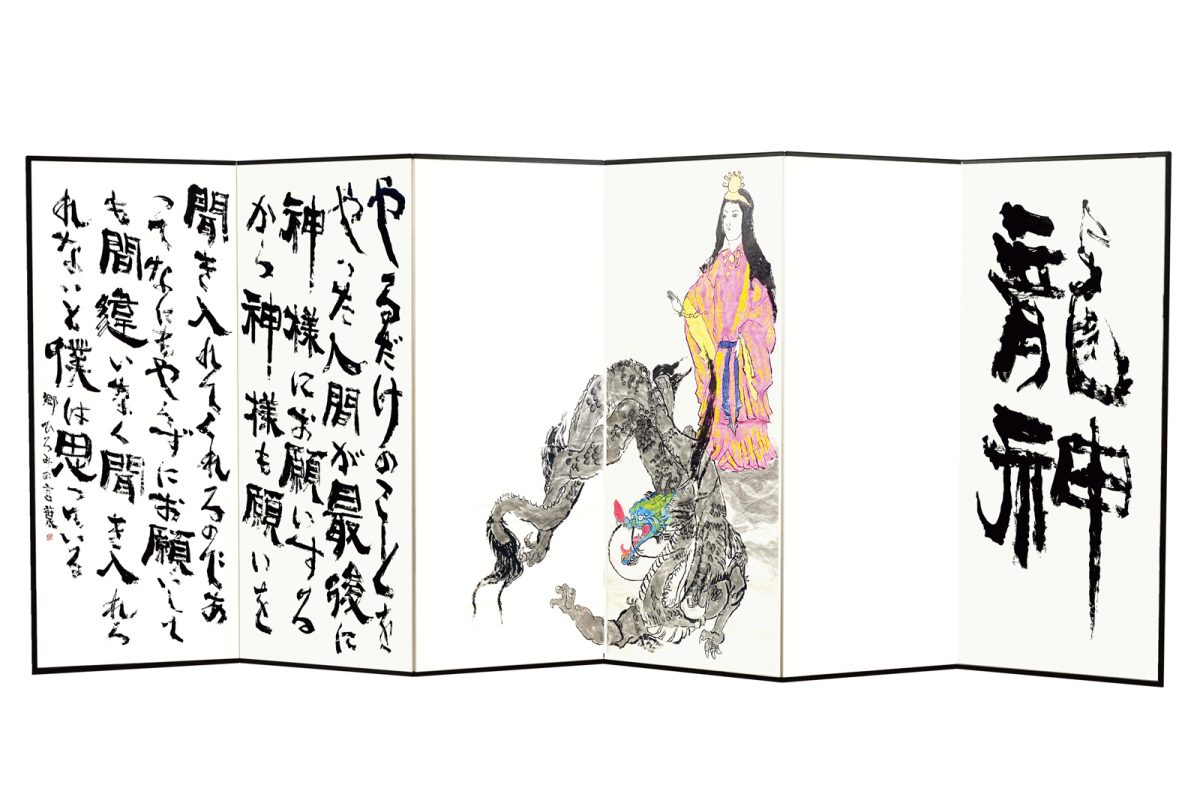 龍神
やるだけのことを
やった人間が最後に
神様にお願いする
から神様も願いを
聞き入れてくれるのであ
ってなにもやらずにお願いして
も間違いなく聞き入れら
れないと僕は思っている
郷ひろみの言葉